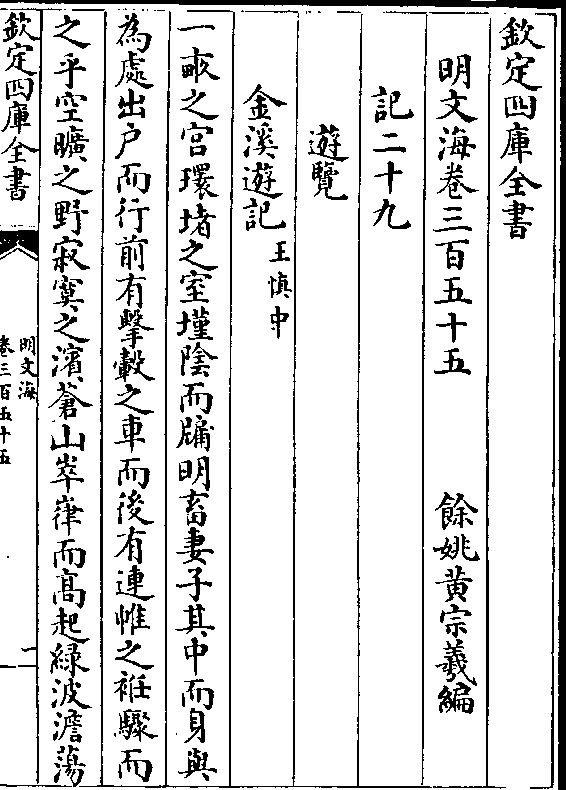 欽定四庫全書
明文海卷三百五十五　　餘姚黄宗羲編
記二十九
遊覽
金溪遊記王慎中
一畝之宫環堵之室墐陰而牖明畜妻子其中而身與
為處出户而行前有擊轂之車而後有連帷之袵驟而
之乎空曠之野寂寞之濱蒼山崒嵂而髙起緑波澹蕩
欽定四庫全書
明文海
卷三百五十五
一